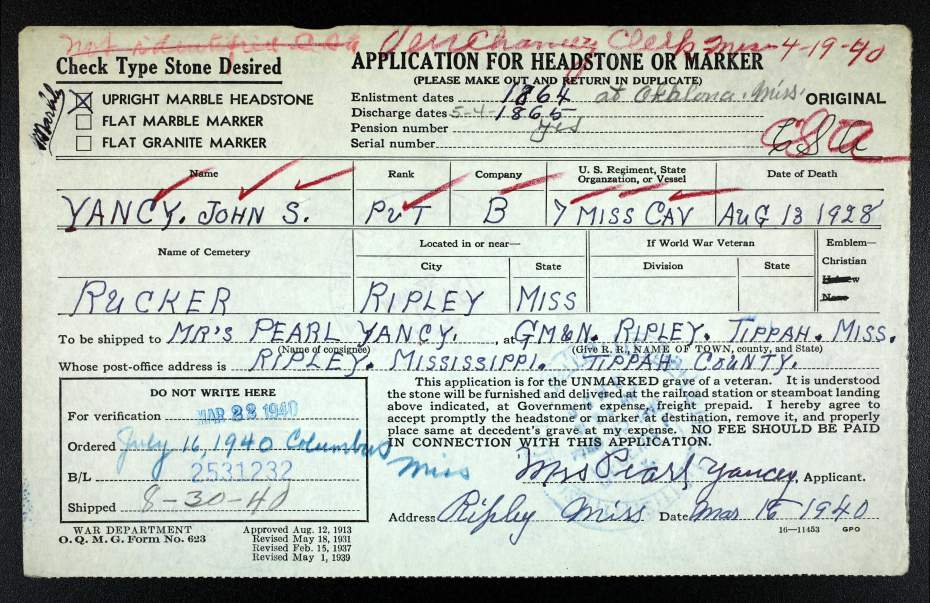 Not identified C S A Den Chancey Clerk Miss 4-19-40
Check Type Stone Desired
APPLICATION FOR HEADSTONE OR MARKER
(PLEASE MAKE OUT AND RETURN IN DUPLICATE)
Marble
☒ UPRIGHT MARBLE HEADSTONE
☐ FLAT MARBLE MARKER
☐ FLAT GRANITE MARKER
Enlistment dates 1864 at Okalona. Miss.
Discharge dates 5-4-1865
Pension number yes
Serial number
ORIGINAL
CSA
Name Rank Company U. S. Regiment, State Organzation, or Vessel Date of Death
YANCY. JOHN S. PVT B 7 MISS CAV AUG 13 1928
Name of Cemetery Located in or near— City State If World War Veteran Division State Emblem—
Christian
Hebrew
None
RUCKER RIPLEY MISS
To be shipped to MR'S PEARL YANCY. , at GM&N. RIPLEY. TIPPAH. MISS.
(Name of consignee) (Give R. R., NAME OF TOWN, county, and State)
Whose post-office address is RIPLEY. MISSISSIPPI. TIPPAH COUNTY.
DO NOT WRITE HERE
For verification MAR 28 1940
Ordered July 16, 1940 Columbus Miss
B/L 2531232
Shipped 8-30-40
This application is for the UNMARKED grave of a veteran. It is understood
the stone will be furnished and delivered at the railroad station or steamboat landing
above indicated, at Government expense, freight prepaid. I hereby agree to
accept promptly the headstone or marker at destination, remove it, and properly
place same at decedent's grave at my expense. NO FEE SHOULD BE PAID
IN CONNECTION WITH THIS APPLICATION.
Mrs Pearl Yancey, Applicant.
Address Ripley Miss Date Mar 16 1940
WAR DEPARTMENT
O. Q. M. G. Form No. 623
Approved Aug. 12, 1913
Revised May 18, 1931
Revised Feb. 15, 1937
Revised May 1, 1939
16—11453 GPO